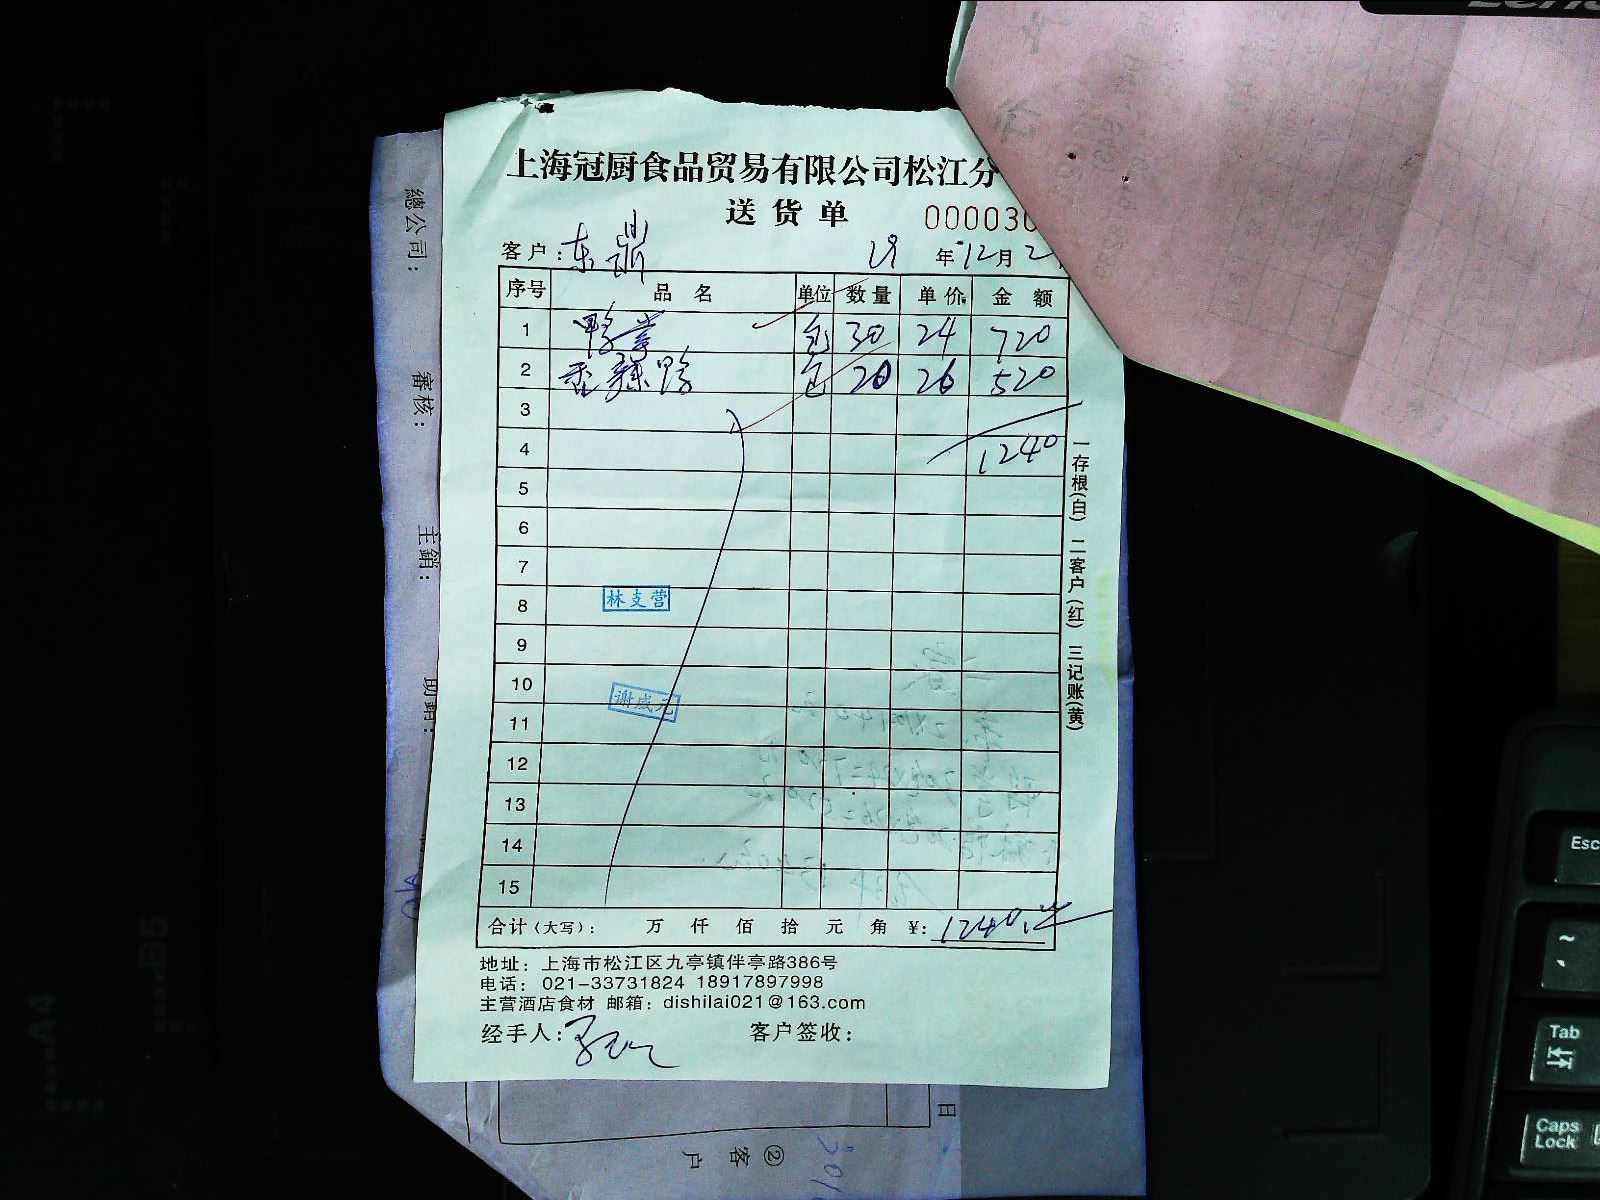 上海冠厨食品贸易有限公司松江分
送货单
00003
客户:东鼎 19年12月2
序号 品名 单位 数量 单价 金额
1 鸭掌 包 30 24 720
2 香辣鸭 包 20 26 520
3
4 1240
5
6
7
8 林支营
9
10 谢成元
11
12
13
14
15
合计(大写): 万 仟 佰 拾 元 角 ¥: 1240.
地址:上海市松江区九亭镇伴亭路386号
电话:021-33731824 18917897998
主营酒店食材 邮箱:dishilai021@163.com
经手人: 客户签收:
一存根(白) 二客户(红) 三记账(黄)
總公司:
審核:
主銷:
助銷:
日
②客户
A4
B5
Esc
~
Tab
Caps Lock